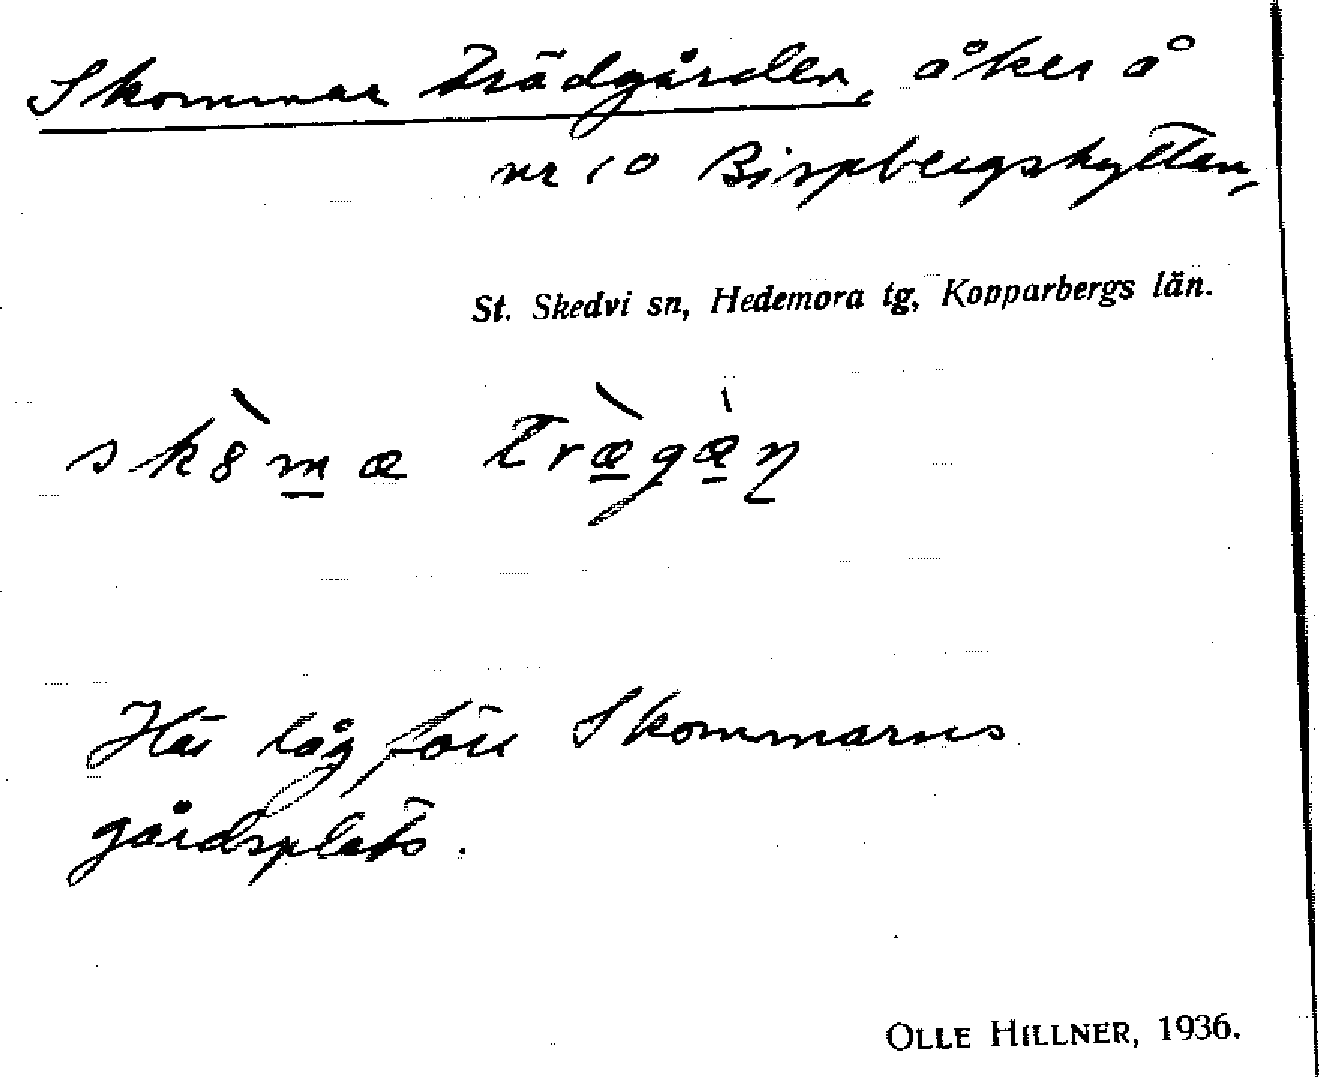 Skommar Trädgården, åker å
nr 10 Bispbergshyttan,
St. Skedvi sn, Hedemora tg, Kopparbergs län.
sk8̀m̲æ træ̲̀gæ̲̀ṇ
Här låg förr Skommarns
gårdsplats.
OLLE HILLNER, 1936.